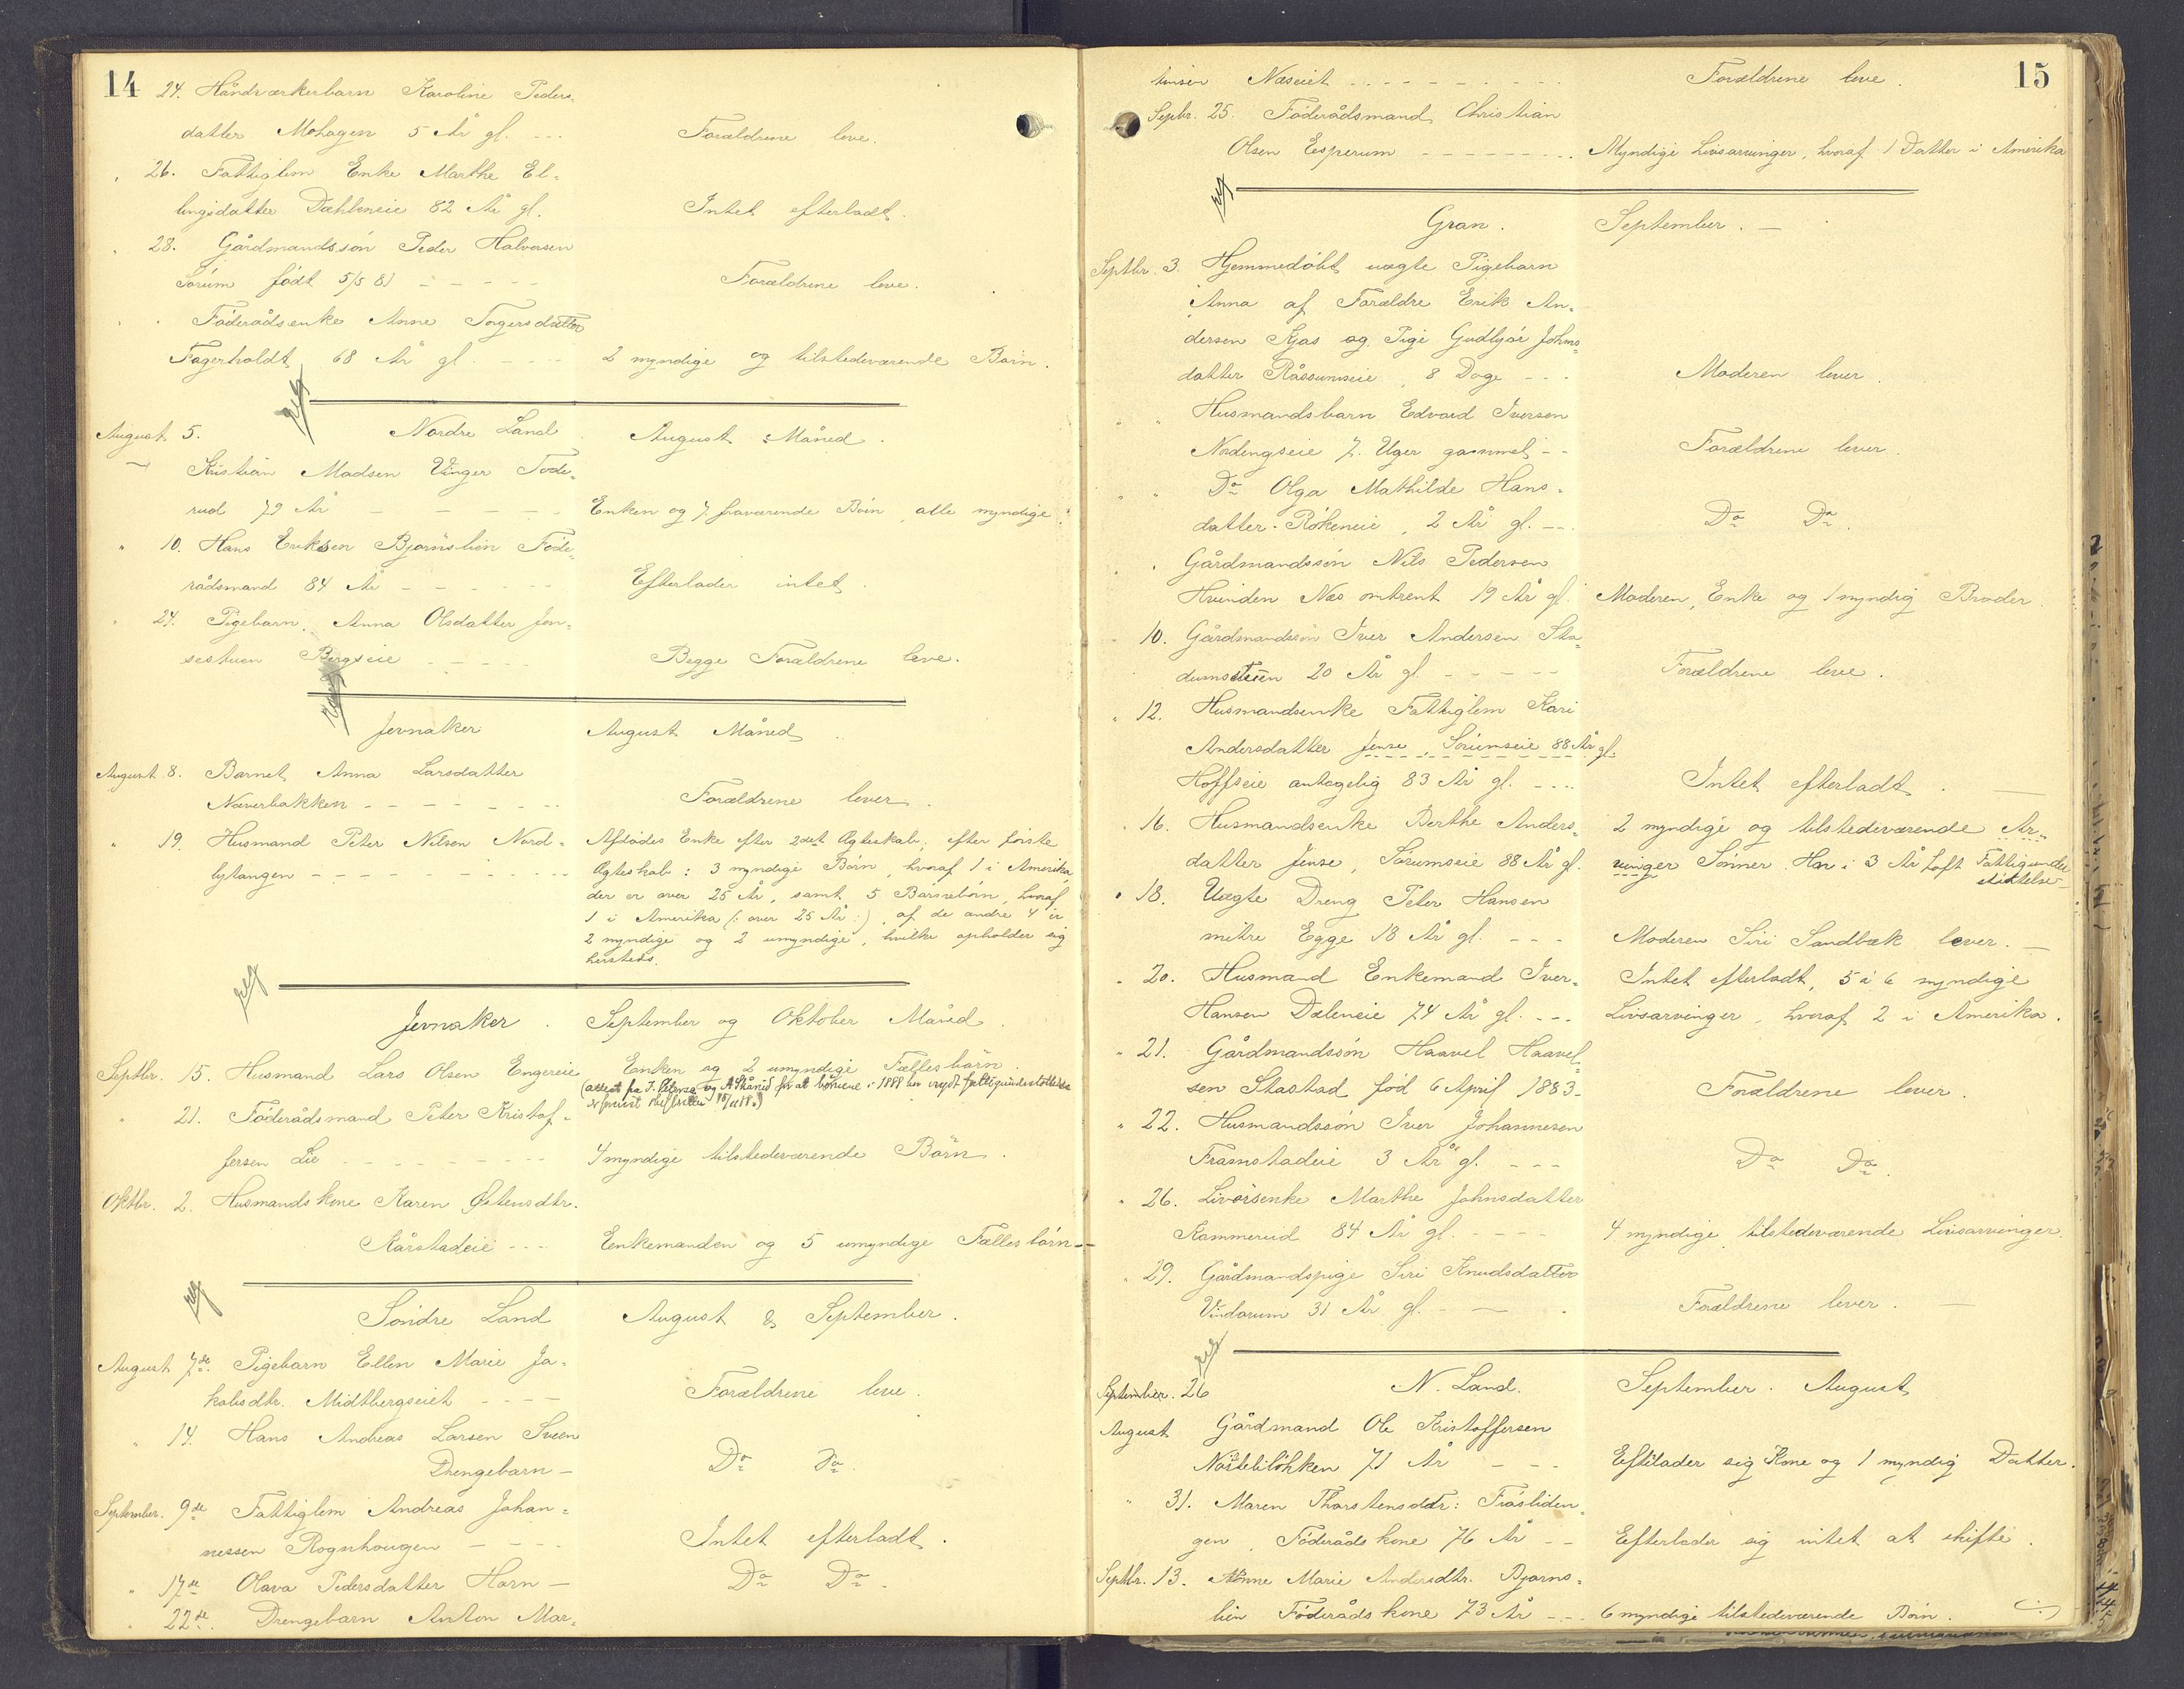 14
24. Håndværkerbarn Karoline Peders-
datter Mohagen 5 År gl. --- Forældrene leve.
" 26. Fattiglem Enke Marthe El-
lingsdatter Dæhleneie 82 År gl. Intet efterladt.
" 28. Gårdmandssøn Peder Halvorsen
Sørum født 5/5 81 - - - - - Forældrene leve.
" " Føderådsenke Anne Torgersdatter
Fagerholdt 68 År gl - - - - 2 myndige og tilstedeværende Børn.
August 5. Nordre Land August Måned.
Kristian Madsen Vinger Tode-
rud 79 År - - - - - Enken og 7 fraværende Børn, alle myndige.
" 10. Hans Eriksen Bjørnslien Føde-
rådsmand 84 År - - - - Efterlader intet.
" 24. Pigebarn Anna Olsdatter Jen-
sestuen Bergseie - - - - - Begge Forældrene leve.
Jevnaker August Måned
August 8. Barnet Anna Larsdatter
Næverbakken - - - - - - - Forældrene lever.
" 19. Husmand Peter Nilsen Nord-
lytangen - - - - - - - - -
Afdødes Enke efter 2det Ægteskab; efter første
Ægteskab: 3 myndige Børn, hvoraf 1 i Amerika,
der er over 25 År, samt 5 Børnebørn, hvoraf
1 i Amerika (: over 25 År :), af de andre 4 er
2 myndige og 2 umyndige, hvilke opholder sig
hersteds.
Jevnaker. September og Oktober Måned.
Septbr. 15. Husmand Lars Olsen Engereie Enken og 2 umyndige Fællesbørn.
" 21. Føderådsmand Peter Kristof-
fersen Lie - - - - - - - - - 4 myndige tilstedeværende Børn.
Oktbr. 2. Husmandskone Karen Østensdtr.
Kårstadeie - - - Eenkemanden og 5 umyndige Fællesbørn -
Søndre Land August & September.
August 7de. Pigebarn Ellen Marie Ja-
kobsdtr. Midtbergseiet - - - - Forældrene leve.
" 14. Hans Andreas Larsen Sveen
Drengebarn - Do Do.
September. 9de Fattiglem Andreas Johan-
nessen Rognhougen - - - - Intet efterladt.
" 17de Olava Pedersdatter Horn - Do Do.
" 22de. Drengebarn Anton Mar-
15
tinsen Næseiet - - - - - - - - - Forældrene leve.
Septbr. 25. Føderådsmand Christian
Olsen Eesperum - - - - - - - - Myndige Livsarvinger, hvoraf 1 Datter i Amerika
Gran. September. -
Septbr. 3. Hjemmedøbt uægte Pigebarn
Anna af Forældre Erik An-
dersen Kjos og Pige Gudbjør Johns-
datter Råssumseie, 8 Dage - - - Moderen lever.
" " Husmandsbarn Edvard Iversen
Nordengseie 7. Uger gammel - - Forældrene lever.
" " Do Olga Mathilde Hans-
datter Røkeneie, 2 År gl. - - - Do Do.
" " Gårdmandssøn Nils Pedersen
Hvinden Næs omtrent 19 År gl. Moderen, Enke og 1 myndig Broder.
" 10. Gårdmandssøn Iver Andersen Sta-
dumsteien 20 År gl. - - - - - Forældrene leve.
" 12. Husmandsenke Fattiglem Kari
Andersdatter Jense, Sørumseie 88 År gl.
Hoffseie antagelig 83 År gl. - - - - Intet efterladt.
" 16. Husmandsenke Berthe Anders- 2 myndige og tilstedeværende Ar-
datter Jense, Sørumseie 88 År gl. vinger Sønner. Har i 3 År haft Fattigunder
støttelse
" 18. Uægte Dreng Peter Hansen
mitre Egge 18 År gl. - - - Moderen Siri Sandbæk lever. -
" 20. Husmand Enkemand Iver- Intet efterladt, 5 à 6 myndige
Hansen Dæleneie 74 År gl. - - - Livsarvinger, hvoraf 2 i Amerika.
" 21. Gårdmandssøn Haavel Haavel-
sen Stastad fød 6 April 1883 - Forældrene lever.
" 22. Husmandssøn Iver Johannesen
Framstadeie 3 År gl. - - - Do Do.
" 26. Livørsenke Marthe Johnsdatter
Kammerud 84 År gl. - - - - 4 myndige tilstedeværende Livsarvinger.
" 29. Gårdmandspige Siri Knudsdatter
Vindorum 31 År gl. - - Forældrene lever. -
September. 26 N. Land. September. August
August Gårdmand Ole Kristoffersen
71 År - - - Efterlader sig Kone og 1 myndig Datter.
" 31. Maren Thorstensdtr: Frøsliden-
gen, Føderådskone 76 År - - Efterlader sig intet at skifte.
Septbr. 13. Anne Marie Andersdtr. Bjørns-
lien Føderådskone 73 År - - - 6 myndige tilstedeværende Børn.